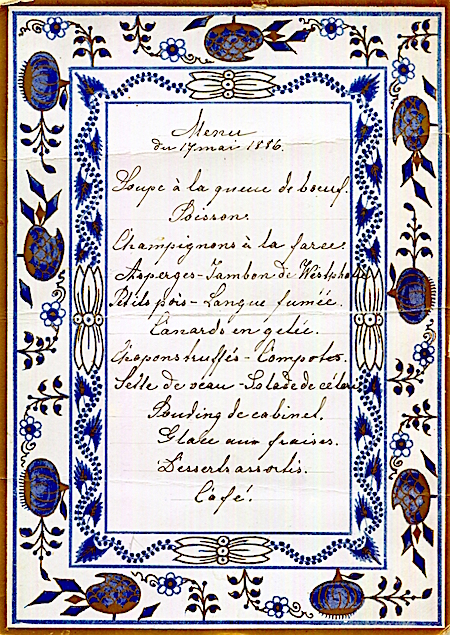 Menu
du 17 mai 1886.
Soupe à la queue de boeuf.
Poisson.
Champignons à la farce.
Asperges - Jambon de Westphalie
Petits pois - Langue fumée.
Canards en gelée.
Chapons truffés - Compotes.
Selle de veau - Salade de céleri
Pouding de cabinet.
Glace aux fraises.
Desserts assortis.
Café.